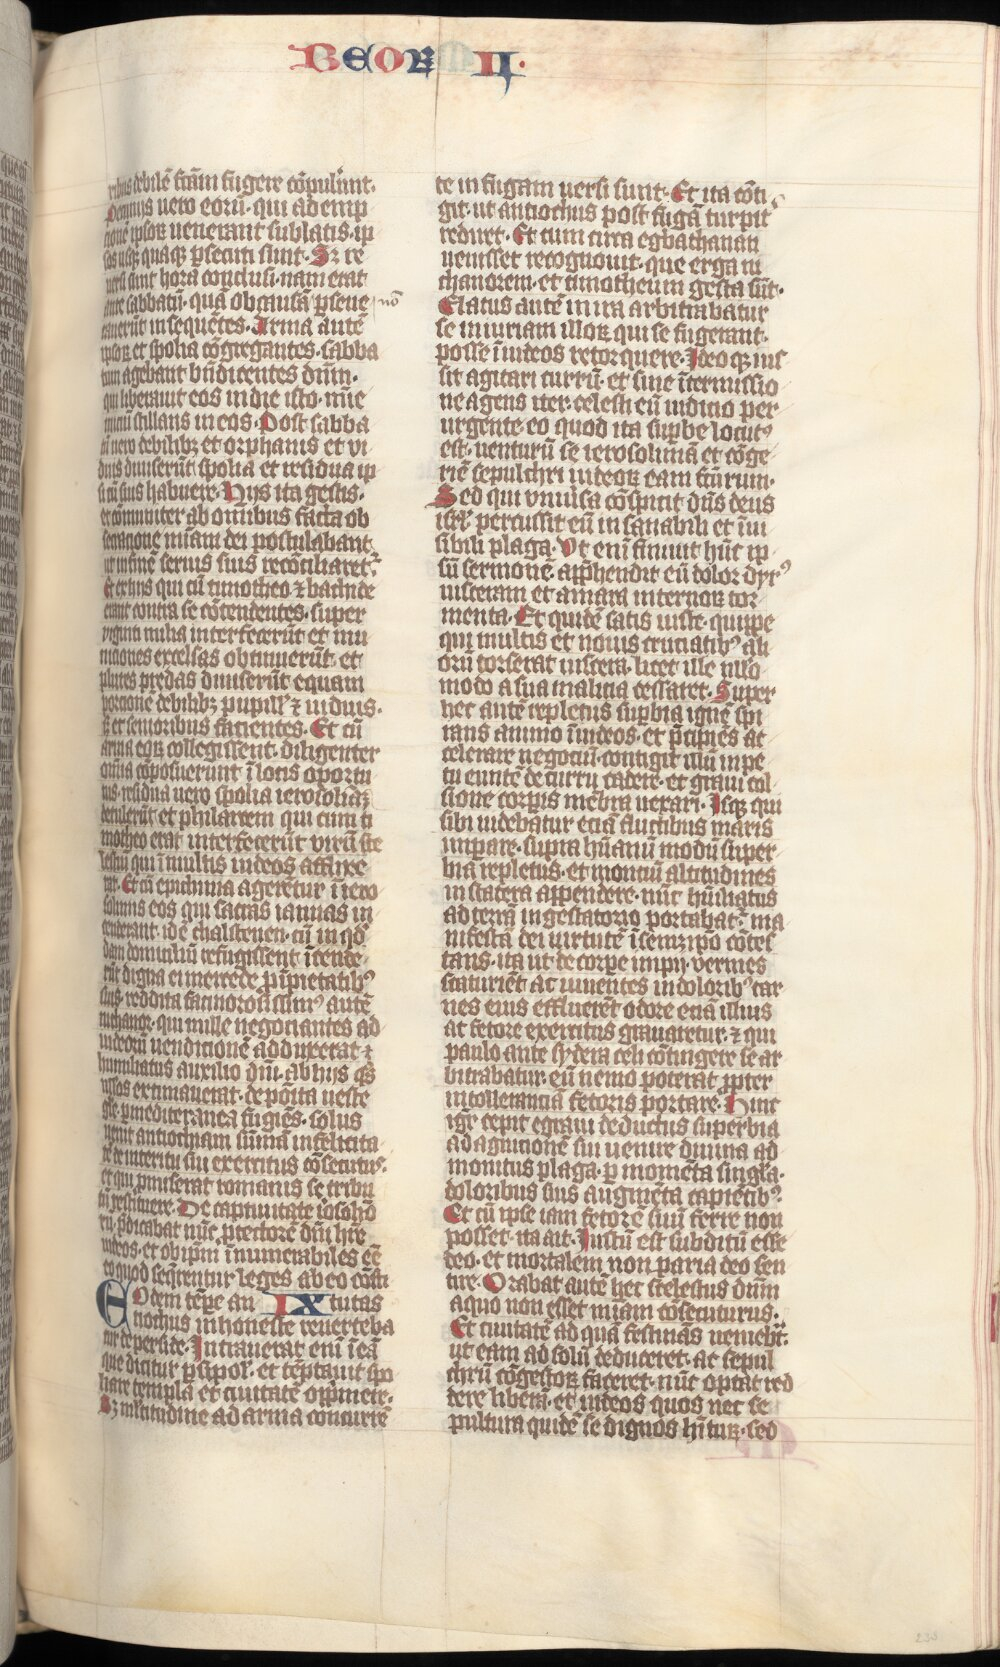 BEOR II.
debilē fcām fugere cōpulunt.
Pecunijs uero eorū. qui ad emp
cionē ipsoꝝ uenerant sublatis. ip
sos usqꝫ quaqꝫ ꝑsecuti sunt. Sꝫ re
uersi sunt hora conclusi. nam erat
ante sabbatū. quā ob causā ꝑseue
nō
rauerūt insequētes. Arma autē
ipsoꝝ et spolia cōgregantes. sabba
tum agebant bn̄dicentes dn̄m.
qui liberauit eos in die isto. mīe
iniciū stillans in eos. Post sabba
tū uero debilibꝫ et orphanis et vi
duis diuiserūt spolia et residua ip
si cū suis habuere. Hijs ita gestis.
et cōmuniter ab omībus facta ob
secracione mīam dei postulabant
ut in finē seruis suis recōciliaret᷑.
Et ex hijs qui cū timotheo ⁊ bachide
erant contra se cōtendentes. super
viginti milia interfecerūt et mu
niciones excelsas obtinuerūt. et
plures predas diuiserūt equam
porcionē debilibꝫ pupill' ⁊ uiduis.
sꝫ et senioribus facientes. Et cū
arma eoꝝ collegissent. diligenter
omīa cōposuerunt ī locis oportu
nis. residua uero spolia ierosolimā
detulerūt et philarcem qui cum ti
motheo erat interfecerūt virū sce
lestū qui ī multis iudeos afflixe
rat. Et cū epichinia ageretur ī iero
solimis eos qui sacras ianuas in
cenderant. idē chalstenen. cū in qd'
dam domiciliū refugissent īcende
rūt digna ei mercede ꝓ īpietatibꝰ
suis reddita facinorosissimꝰ autē
nichanor. qui mille negociantes ad
iudeoꝝ uendicionē adduxerat ⁊
humiliatus auxilio dn̄i. ab hijs q̄s
nullos extimauerat. deposita ueste
glē ꝑ mediterranea fugiēs. solus
uenit antiochiam summā infelicita
tē de interitu sui exercitus cōsecutus.
et qui ꝓmiserat romanis se tribu
tū restituere. De captiuitate iosolimo
rū. p̄dicabat nūc ꝓtectorē dn̄m hr̄e
iudeos. et ob ip̄m īnumerabiles eē
eo quod seqrentur leges ab eo cōsti
Eodem tēpꝑe an IX tutas
tiochus inhoneste reuerteba
tur de perside. Intrauerat enī ī eā
que dicitur ꝑsipol'. et tēptauit spo
liare templa et ciuitatē opp̄mere.
Sꝫ multitudine ad arma concurrē
te in fugam uersi sunt. Et ita cōti
git. ut antiochus post fugā turpit'
rediret. Et cum circa egbathanan
uenisset recognouit. que erga ni
chanorem. et timotheum gesta sūt.
Elatus autē in ira arbitrabatur
se iniuriam illoꝝ qui se fugerant.
posse ī iudeos retorquere. Ideoqꝫ ius
sit agitari currū. et sine ītermissio
ne agens iter. celesti eū iudicio per
urgente eo quod ita sup̄be locutꝰ
est. uenturū se ierosolimā et cōge
riē sepulchri iudeoꝝ eam fctūrum.
Sed qui vniu'sa cōspicit dn̄s deus
isrl'. percussit eū in sanabili et īui
sibili plaga. Vt enī finiuit hūc ip
sū sermonē. app̄hendit eū dolor dyrꝰ
uisceram et amara internoꝝ tor
menta. Et quidē satis iuste. quippe
qui multis et nouis cruciatibꝰ ali
orū torserat uiscera. licet ille nullo
modo a sua malicia cessaret. Super
hec autē repletus sup̄bia ignē spi
rans animo ī iudeos. et p̄cipiēs ac
celerare negociū. contigit illū inpe
tu euntē de curru cadere. et graui col
lisione corp̄is mēbra uexari. Isqꝫ qui
sibi uidebatur eciā fluctibus maris
imperare. supra hūanū modū super
bia repletus. et montiū altitudines
in statera appendere. nūc hūiliatus
ad terrā in gestatorio portabat᷑. ma
nifestā dei uirtutē ī semꝫ ip̄o cōtes
tans. ita ut de corꝑe impij. vermes
scaturiēt ac uiuentes in doloribꝰ car
nes eius effluerēt odore eciā illius
ac fetore exercitus grauaretur. ⁊ qui
paulo ante sydera celi cōtingere se ar
bitrabatur. eū nemo poterat ꝓpter
intollerantiā fetoris portare. Hinc
igr̄ cepit egraui deductus superbia
ad agnicionē sui uenire diuina ad
monitus plaga. ꝑ momēta singl'a.
doloribus suis augmēta capiētibꝰ.
Et cū ipse iam fetorē suū ferre non
posset. ita ait. Iustū est subditū esse
deo. et mortalem non paria deo sen
tire. Orabat autē hec scelestus dn̄m
a quo non esset mīam cōsecuturus.
Et ciuitatē ad quā festinās ueniebt̄.
ut eam ad solū deduceret. ac sepul
chrū cōgestoꝝ faceret. nūc optat red
dere liberā. et iudeos quos nec se
pultura quidē se dignos hīturꝫ. sed
235